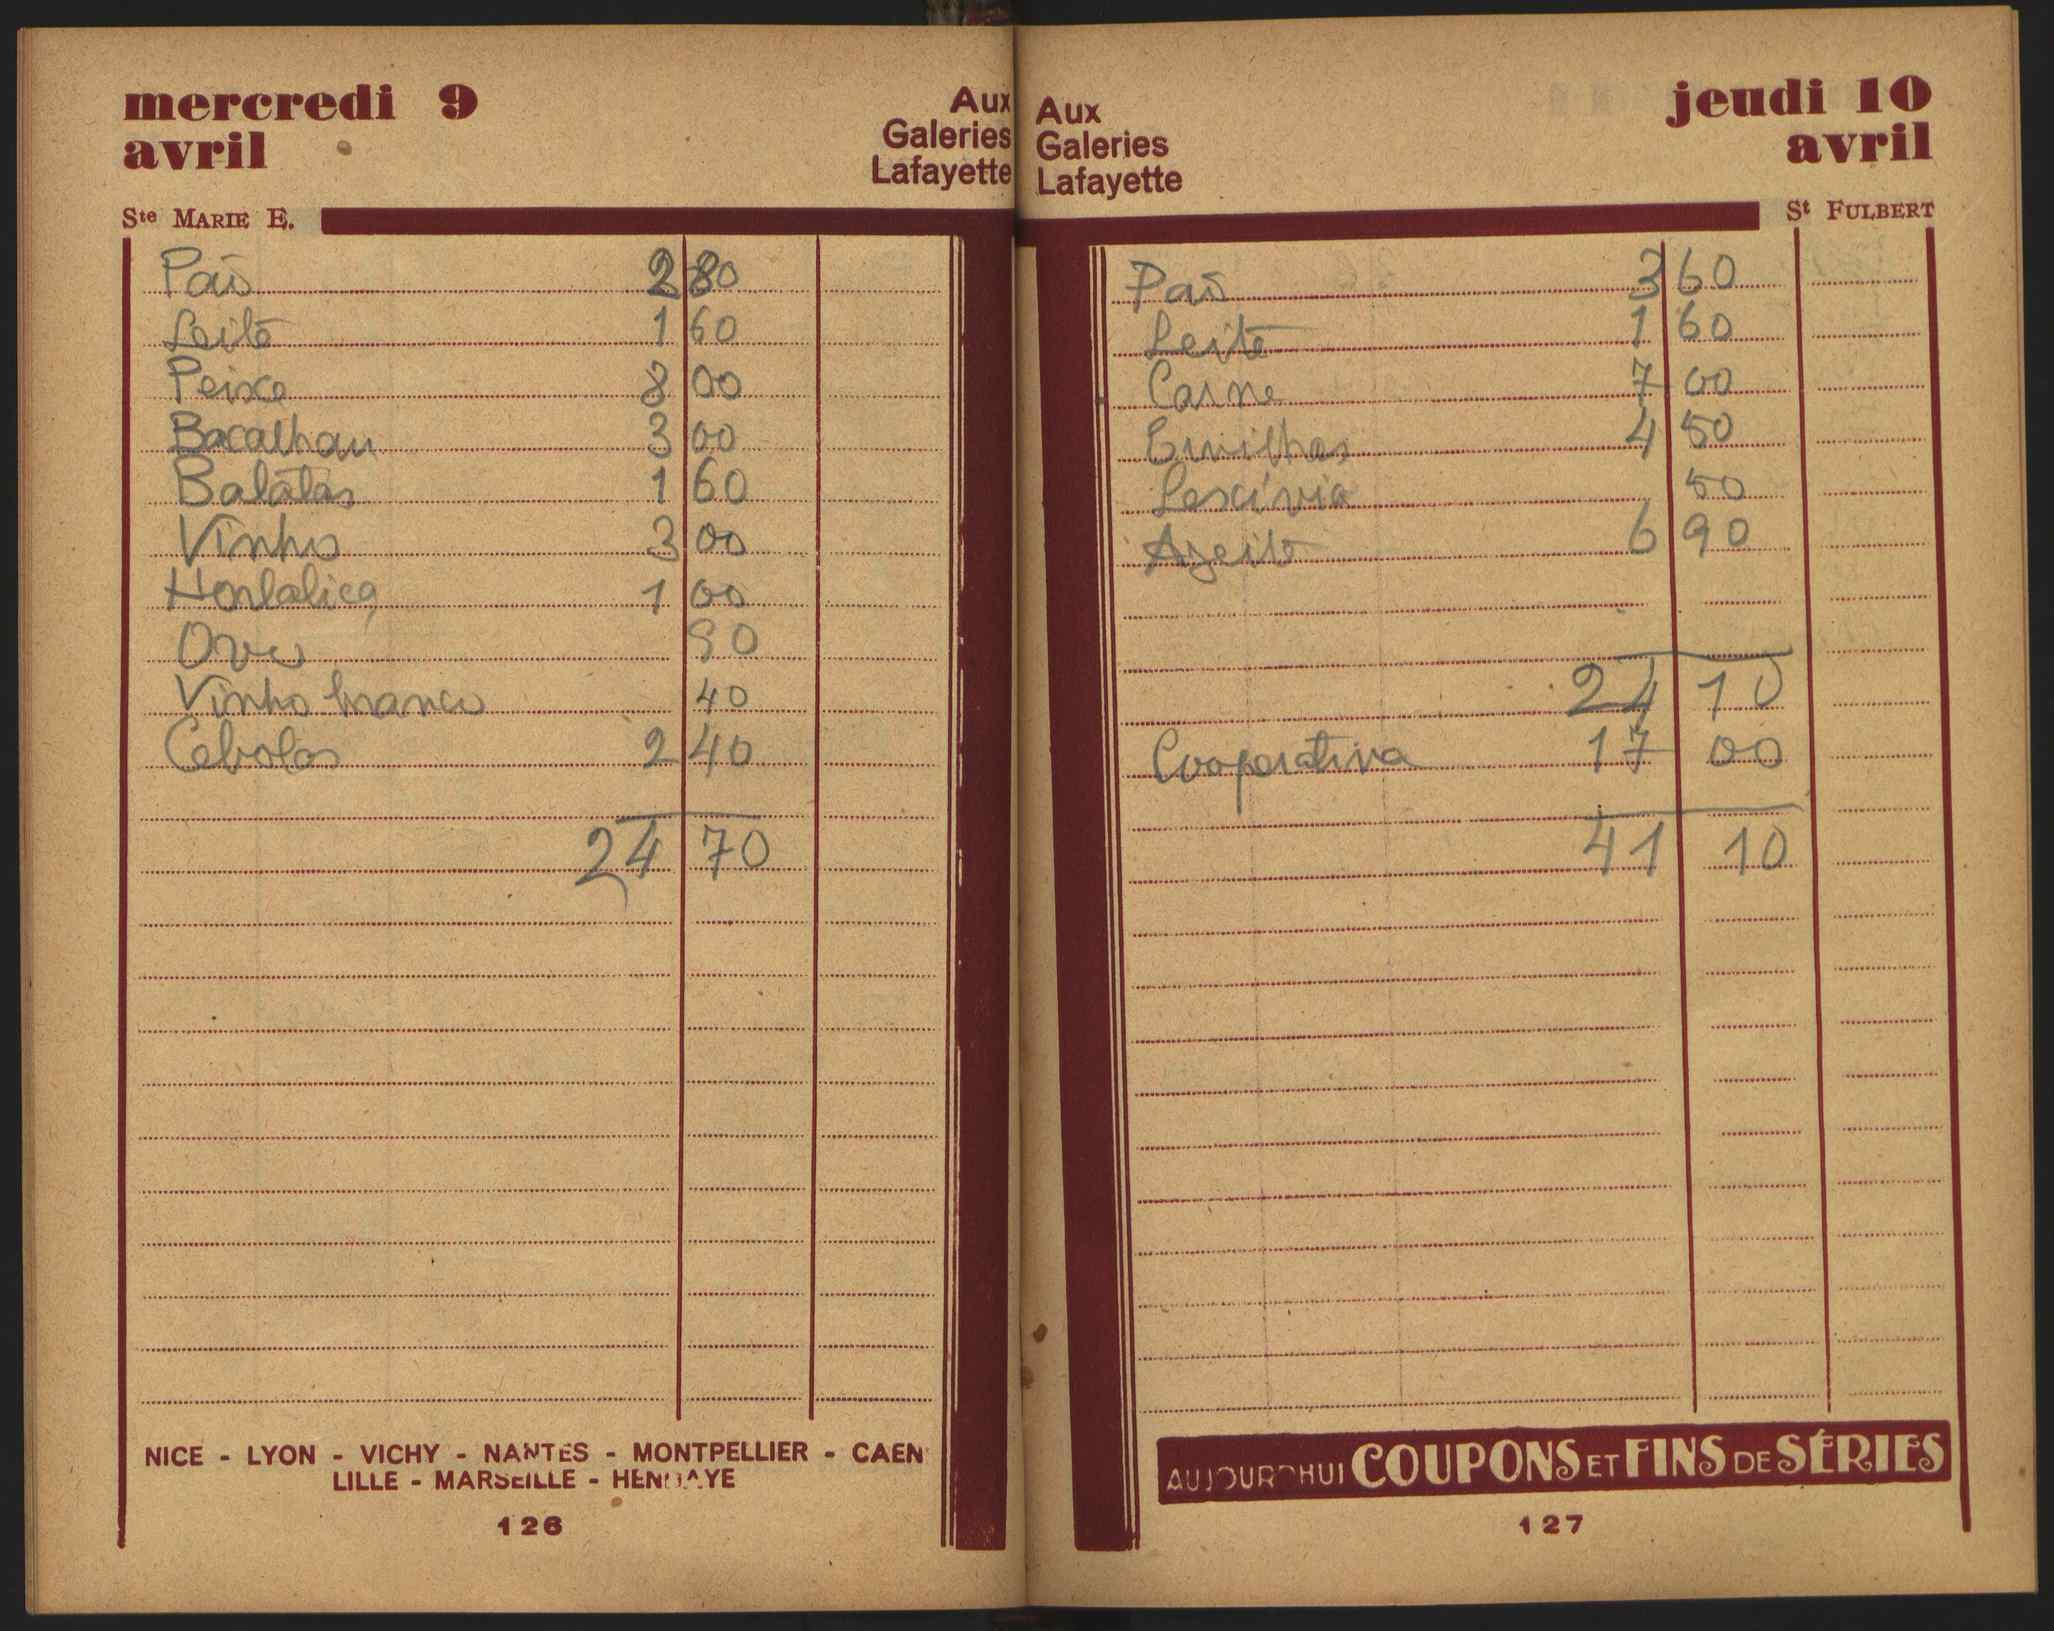 mercredi 9
avril
Aux
Galeries
Lafayette
Ste MARIE E.
Pão 2 80
Leite 1 60
Peixe 8 00
Bacalhau 3 00
Batatas 1 60
Vinho 3 00
Hortaliça 1 00
Ovo 90
Vinho branco 40
Cebolas 2 40
24 70
NICE - LYON - VICHY - NANTES - MONTPELLIER - CAEN
LILLE - MARSEILLE - HENDAYE
126
Aux
Galeries
Lafayette
jeudi 10
avril
St FULBERT
Pão 3 60
Leite 1 60
Carne 7 00
Ervilhas 4 50
Lexívia 50
Azeite 6 90
24 10
Cooperativa 17 00
41 10
AUJOURD'HUI COUPONS ET FINS DE SÉRIES
127